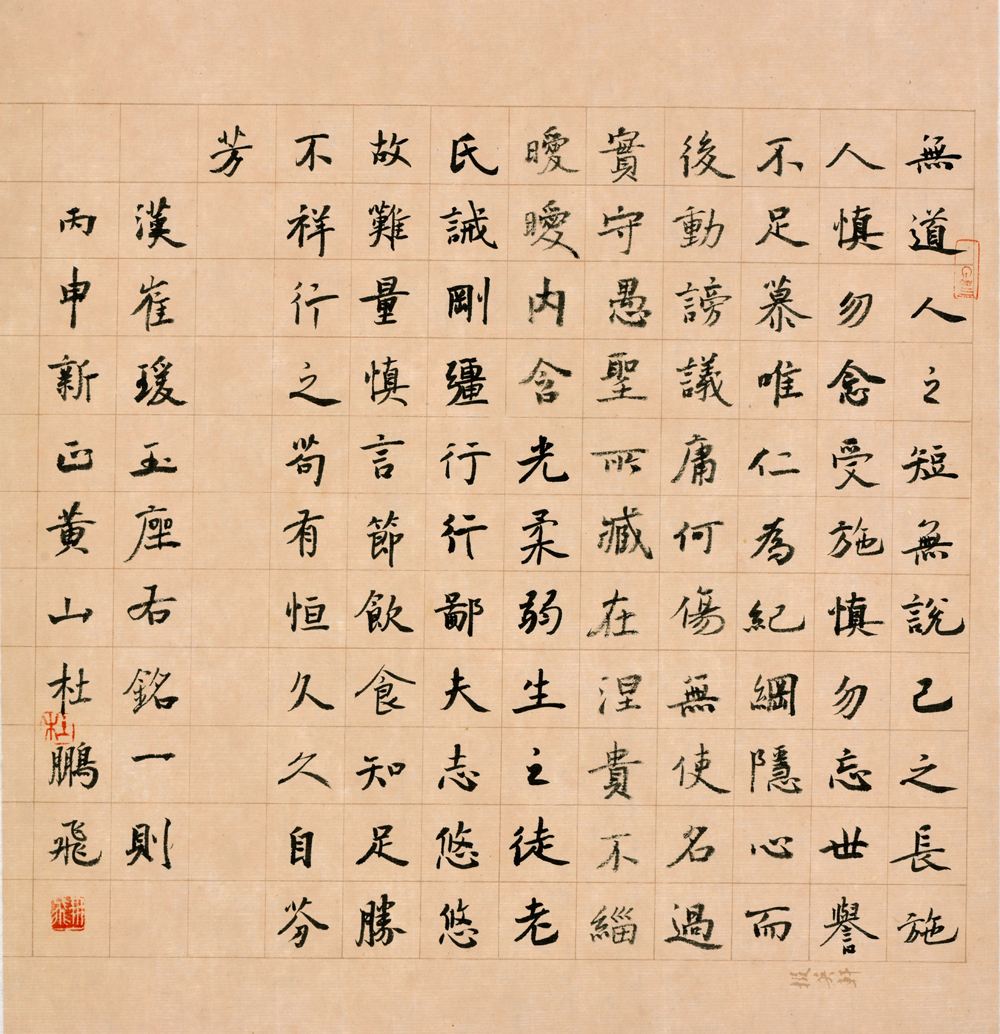 無道人之短無說己之長施
人慎勿念受施慎勿忘世譽
不足慕唯仁為紀綱隱心而
後動謗議庸何傷無使名過
實守愚聖所臧在涅貴不緇
曖曖内含光柔弱生之徒老
氏誡剛彊行行鄙夫志悠悠
故難量慎言節飲食知足勝
不祥行之苟有恒久久自芬
芳
漢崔瑗玉座右銘一則
丙申新正黄山杜鵬飛
杜